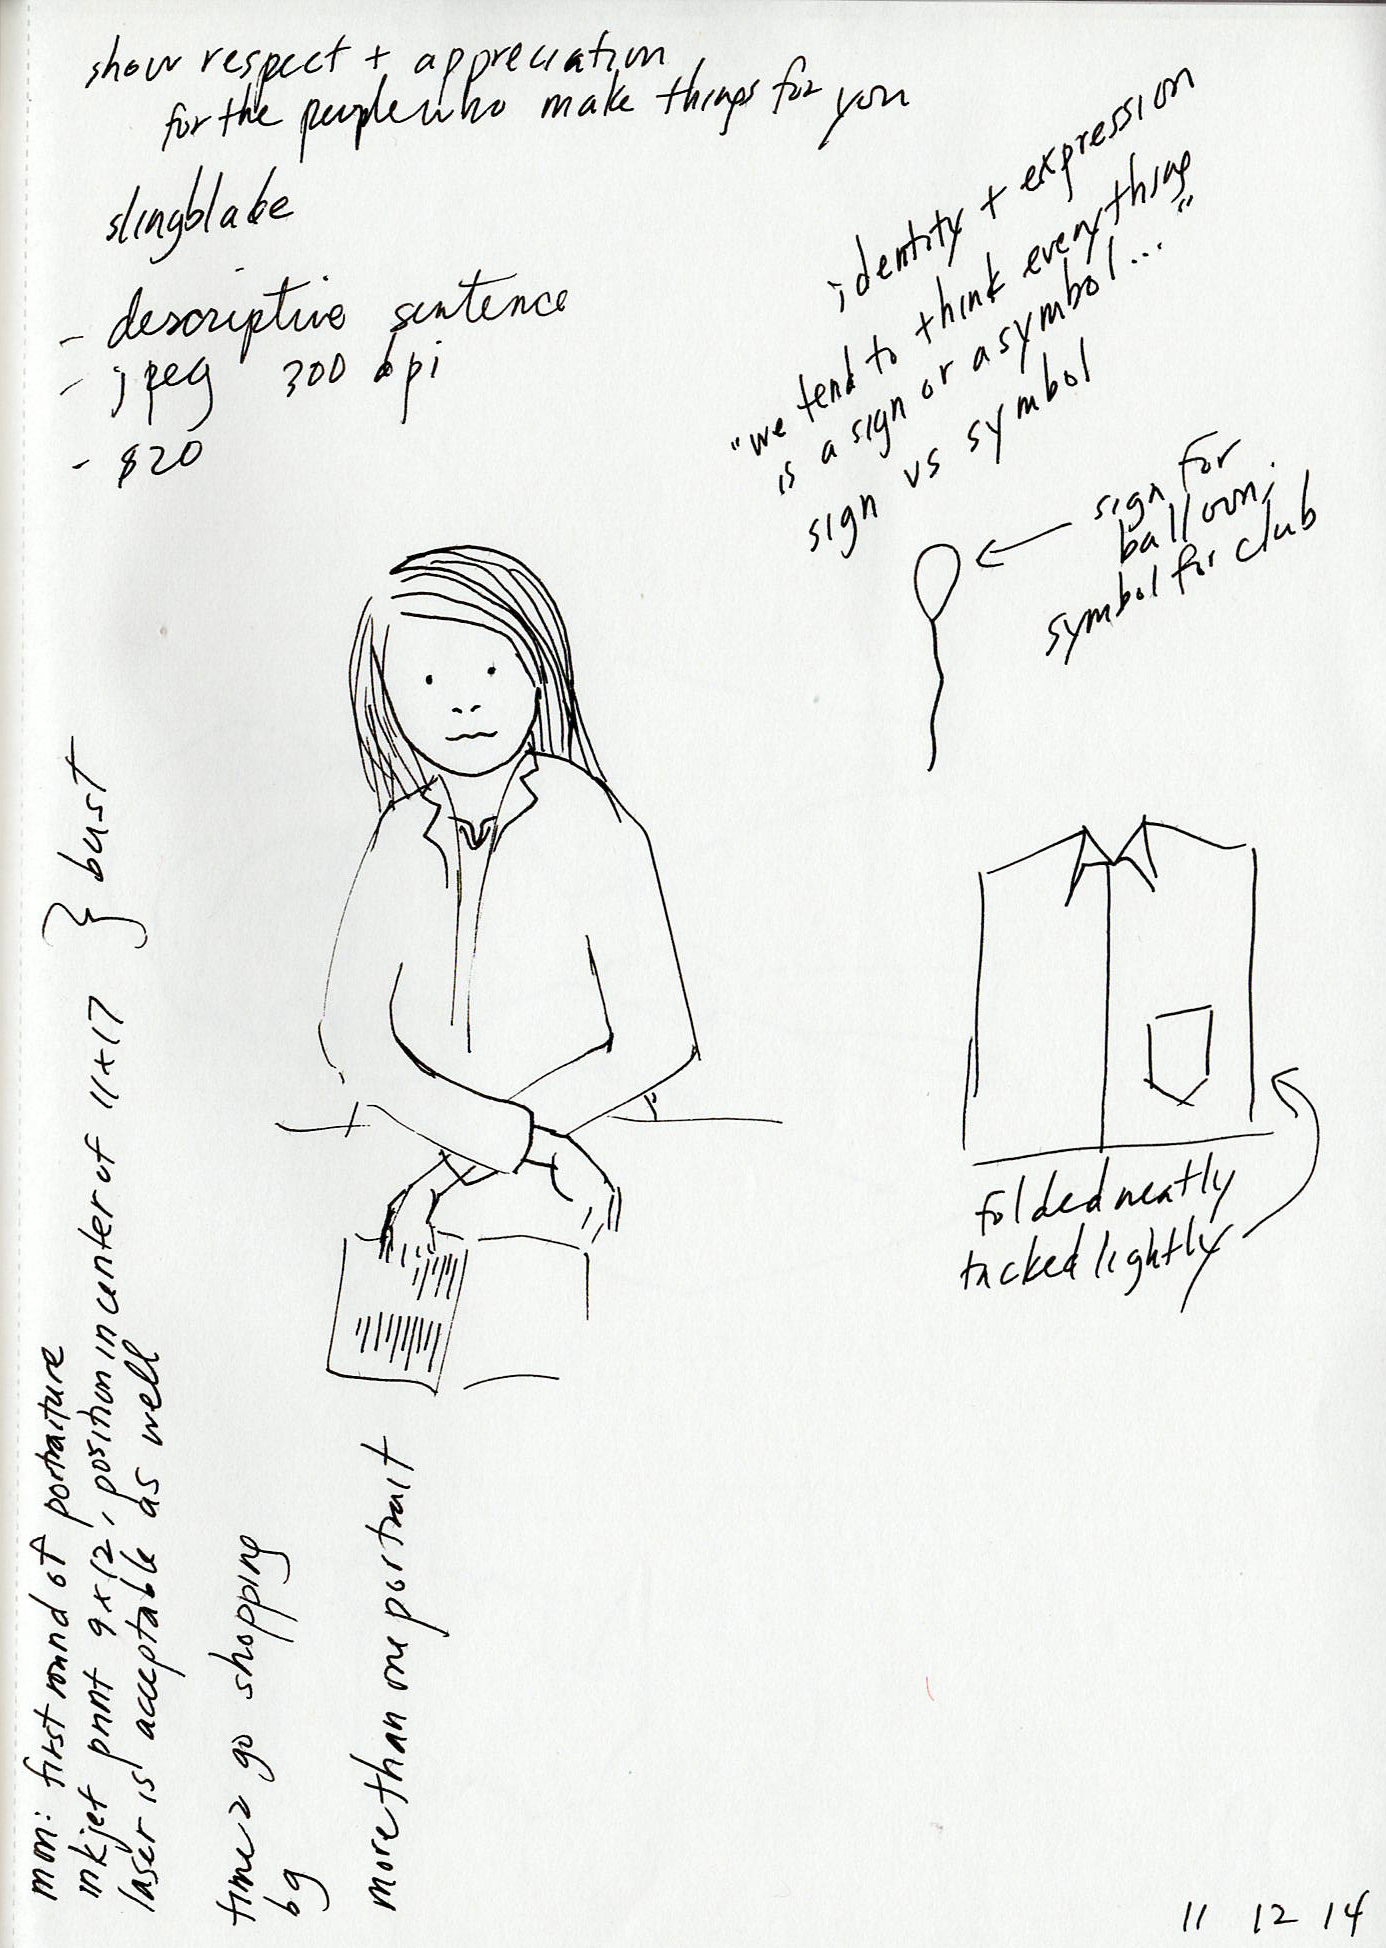 show respect + appreciation
for the people who make things for you
slingblade
- descriptive sentence
- jpeg 300 dpi
- $20
identity + expression
"we tend to think everything
is a sign or a symbol..."
sign vs symbol
sign for
balloon;
symbol for club
folded neatly
tacked lightly
} bust
mon: first round of portraiture
inkjet print 9x12, position in center of 11x17
laser is acceptable as well
time 2 go shopping
bg
more than one portrait
11 12 14